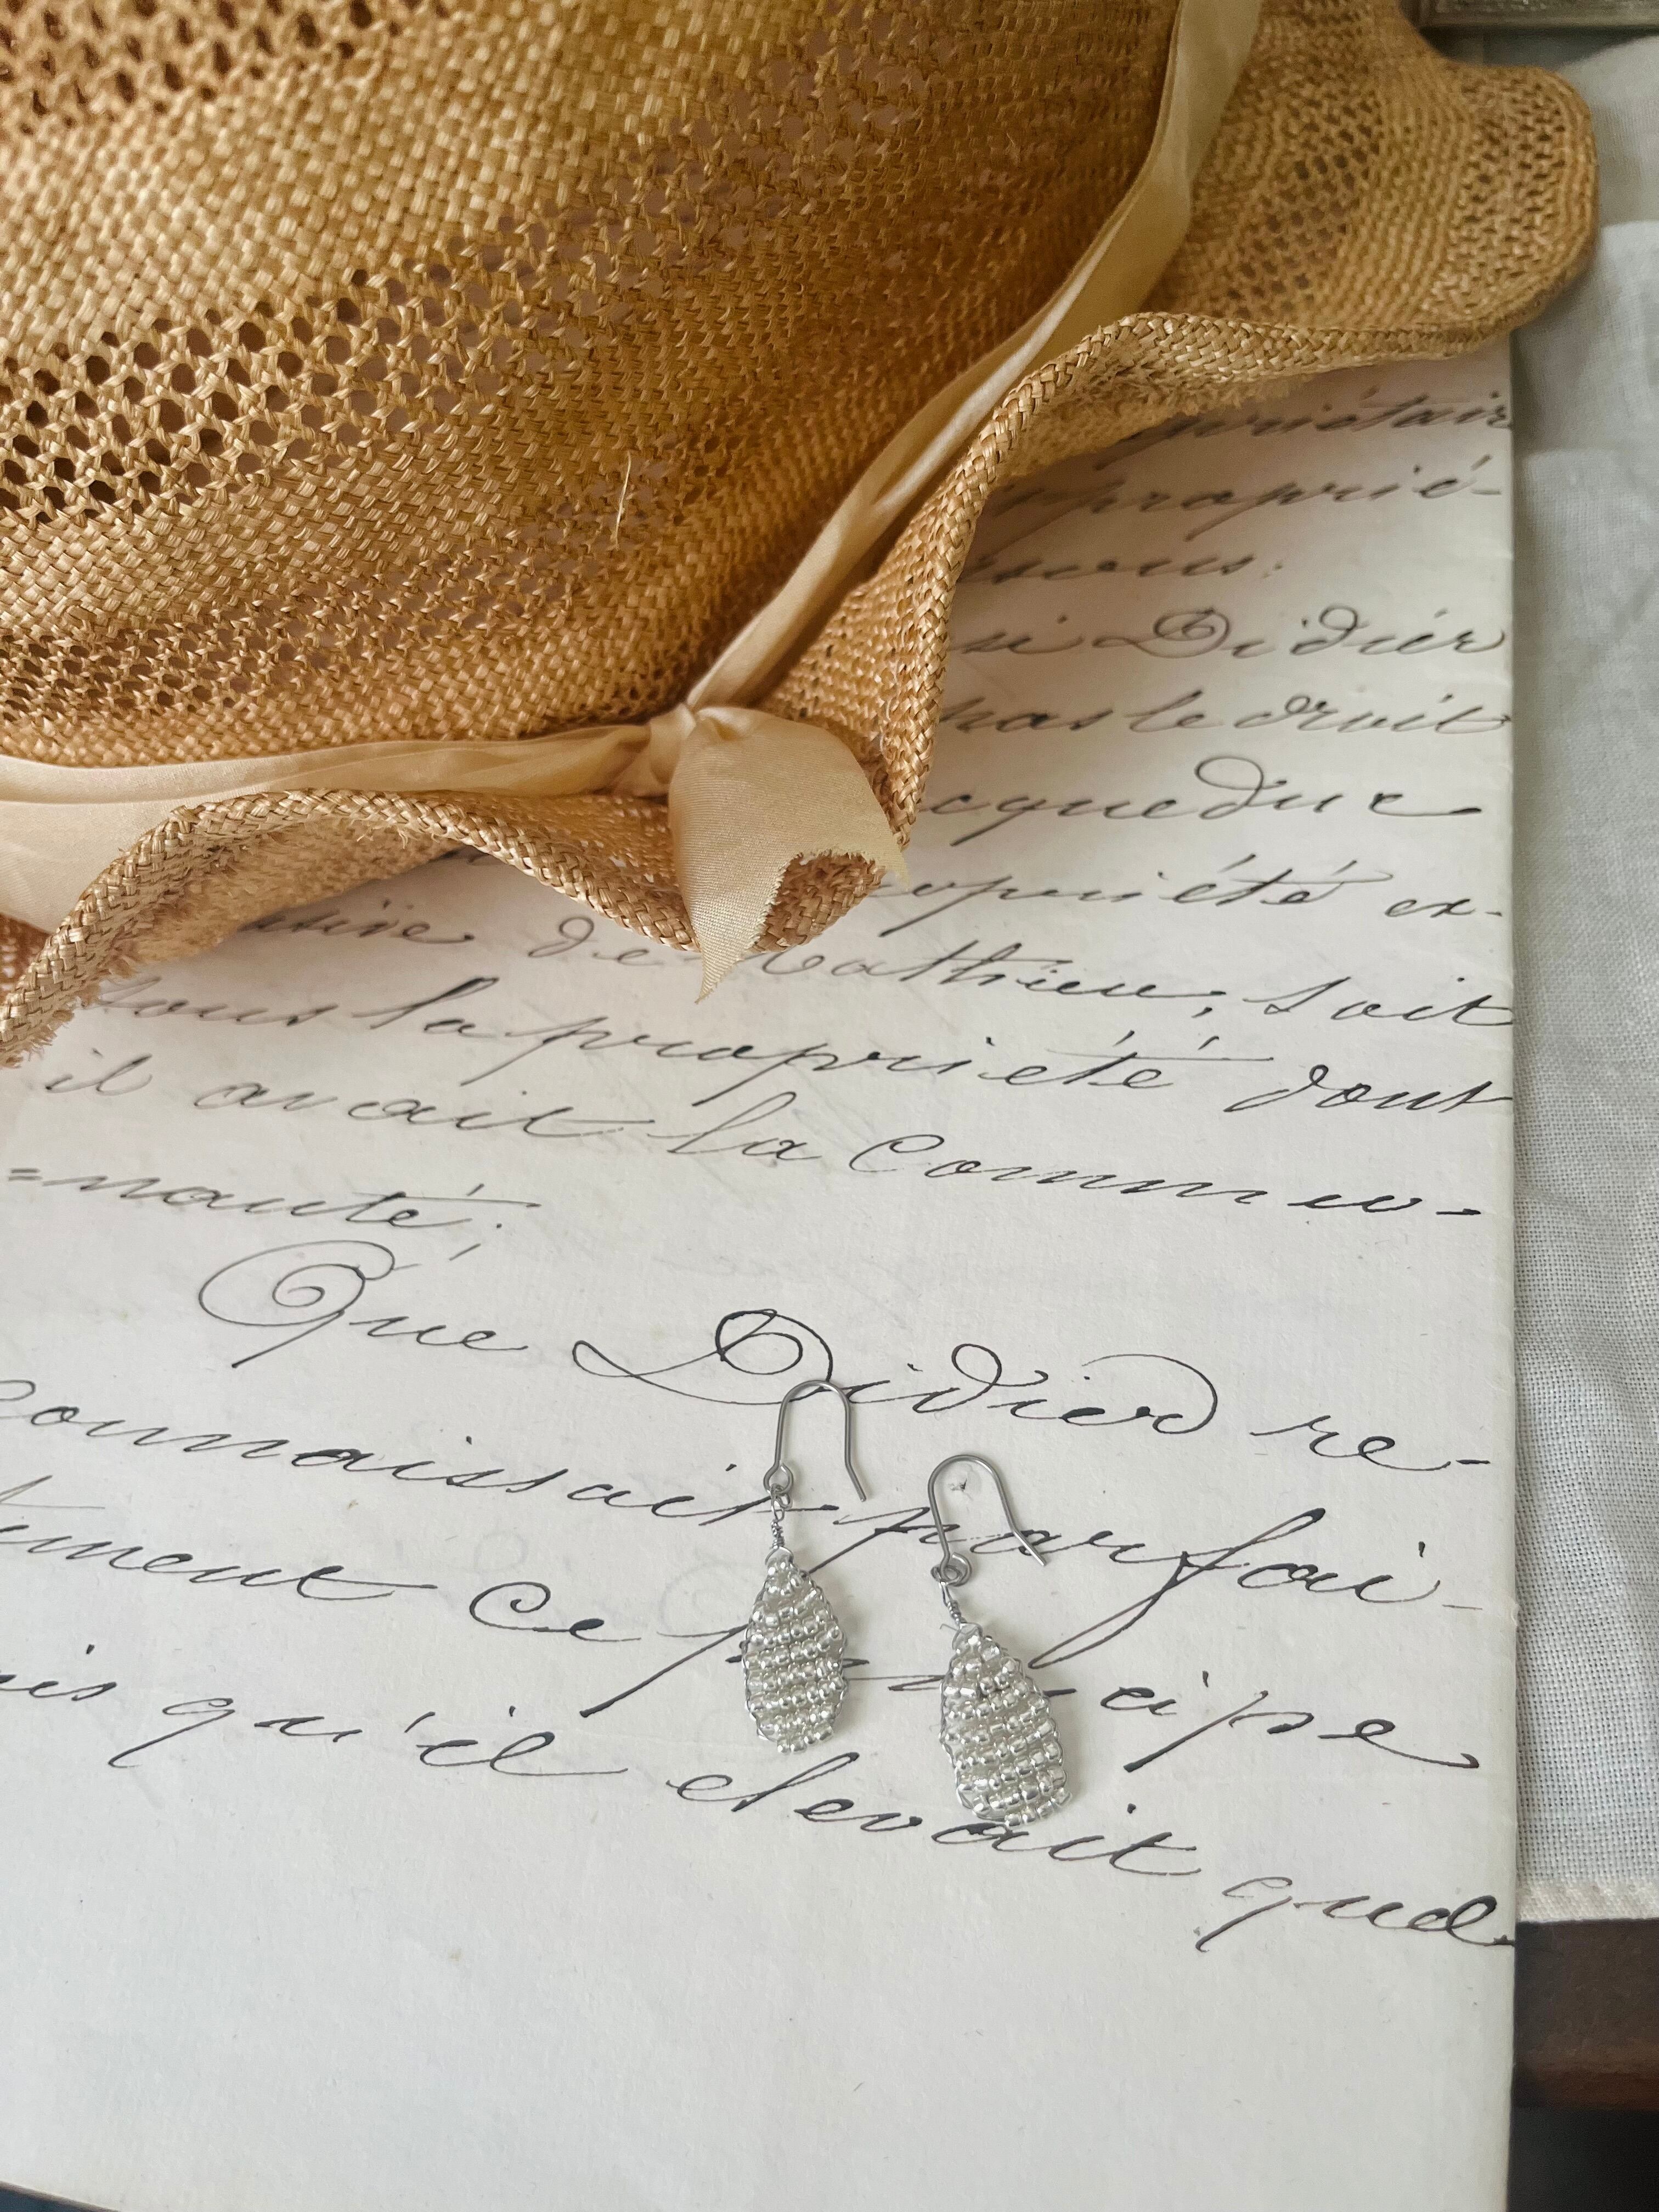 propriétair
proprié-
si Didier
pas le droit
cqueduc
opriété ex-
de Mathieu, soit
tous la propriété dont
il avait la Commu-
=nauté;
Que Didier re-
connaissait parfai-
tement ce principe
puisqu'il elevait que